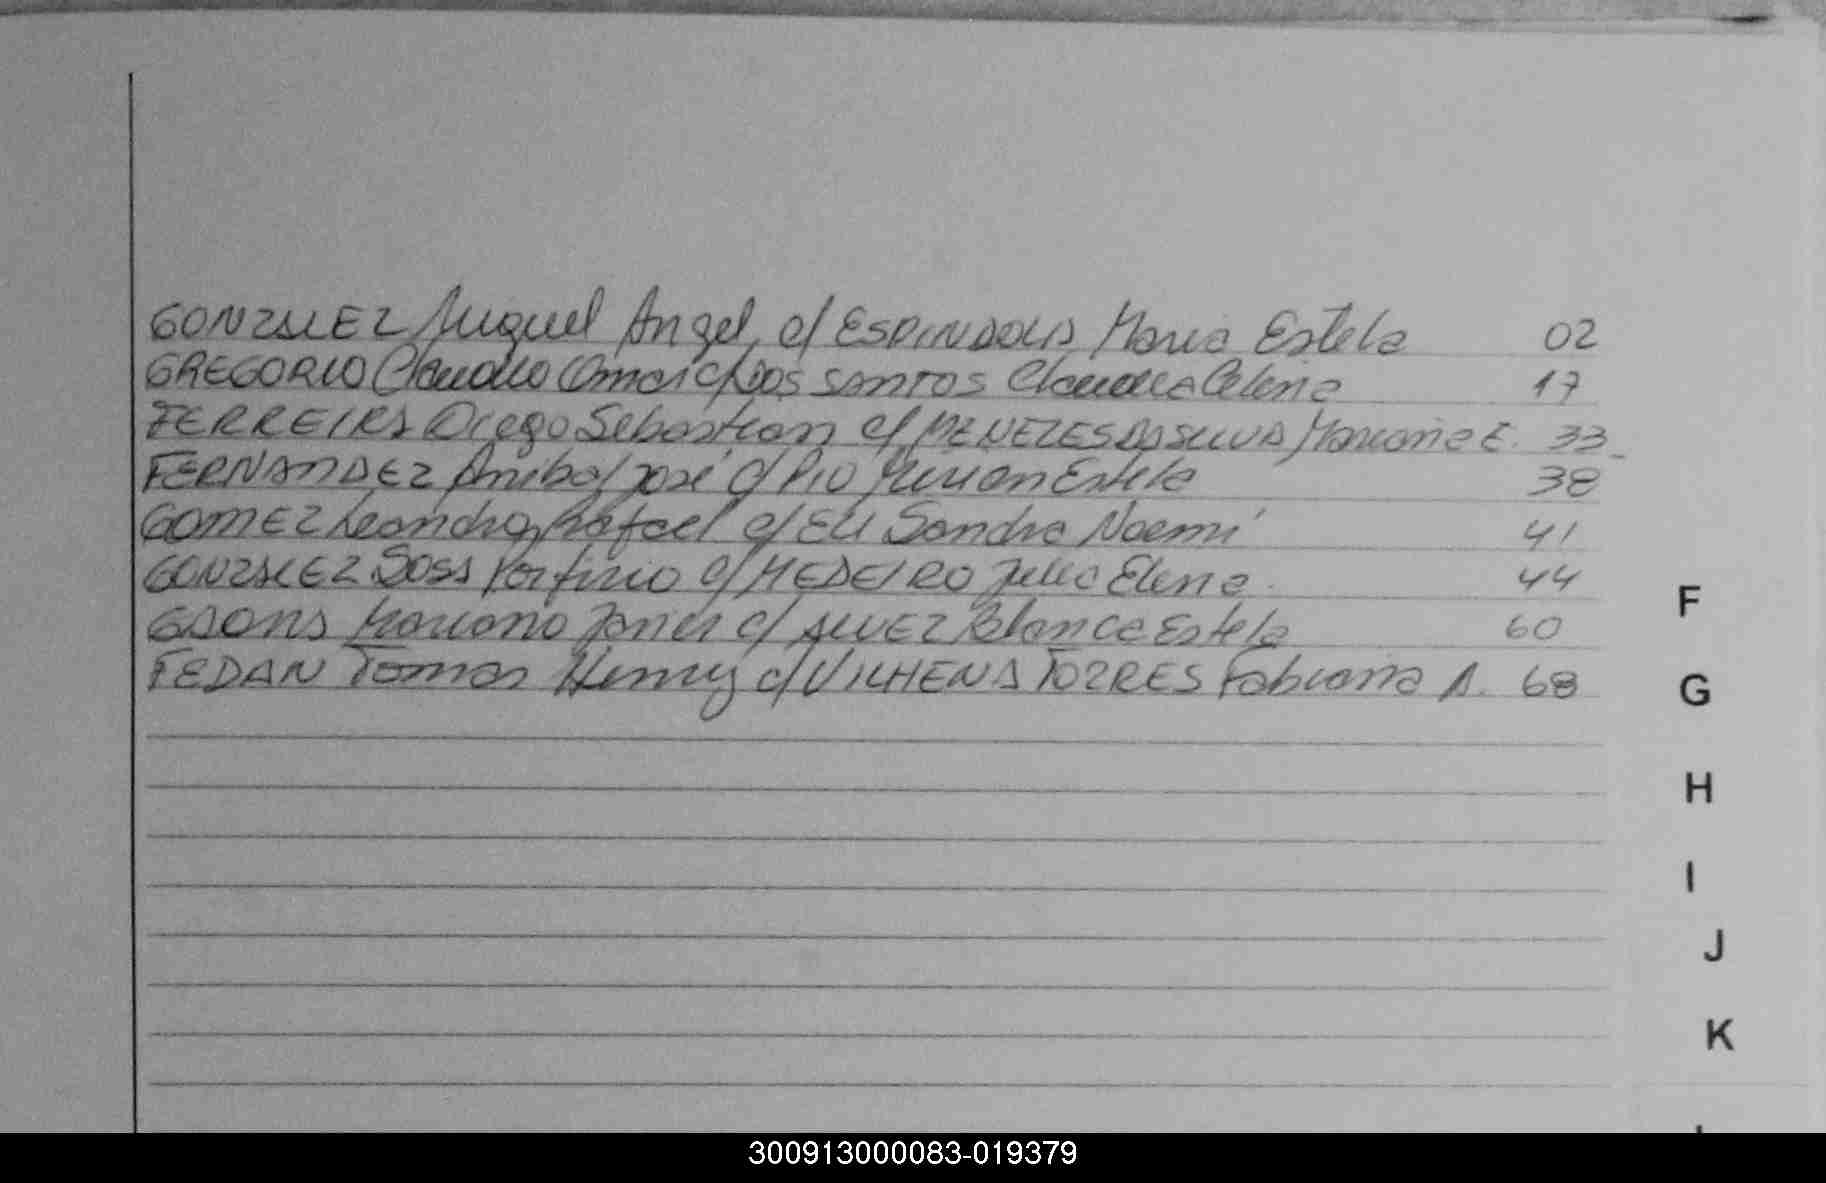 GONZALEZ Miguel Angel c/ ESPINDOLA Maria Estela 02
GREGORIO Claudio Omar c/ DOS SANTOS Claudia Celena 17
FERREIRA Diego Sebastian c/ MENEZES DA SILVA Mariana E. 33
FERNANDEZ Anibal José c/ PIO Miriam Estela 38
GOMEZ Leandro Rafael c/ ELI Sandra Noemi 41
GONZALEZ SOSA Porfirio c/ MEDEIRO Julia Elena 44
GAONA Mariano Javier c/ ALVEZ Blanca Estela 60
FEDAN Tomas Henry c/ VILHENA TORRES Fabiana A. 68
F
G
H
I
J
K
300913000083-019379